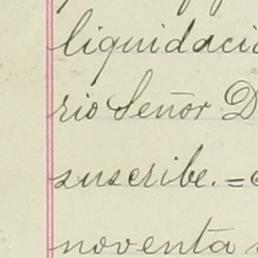 liquidaci
rio Señor D
suscribe.=
noventa